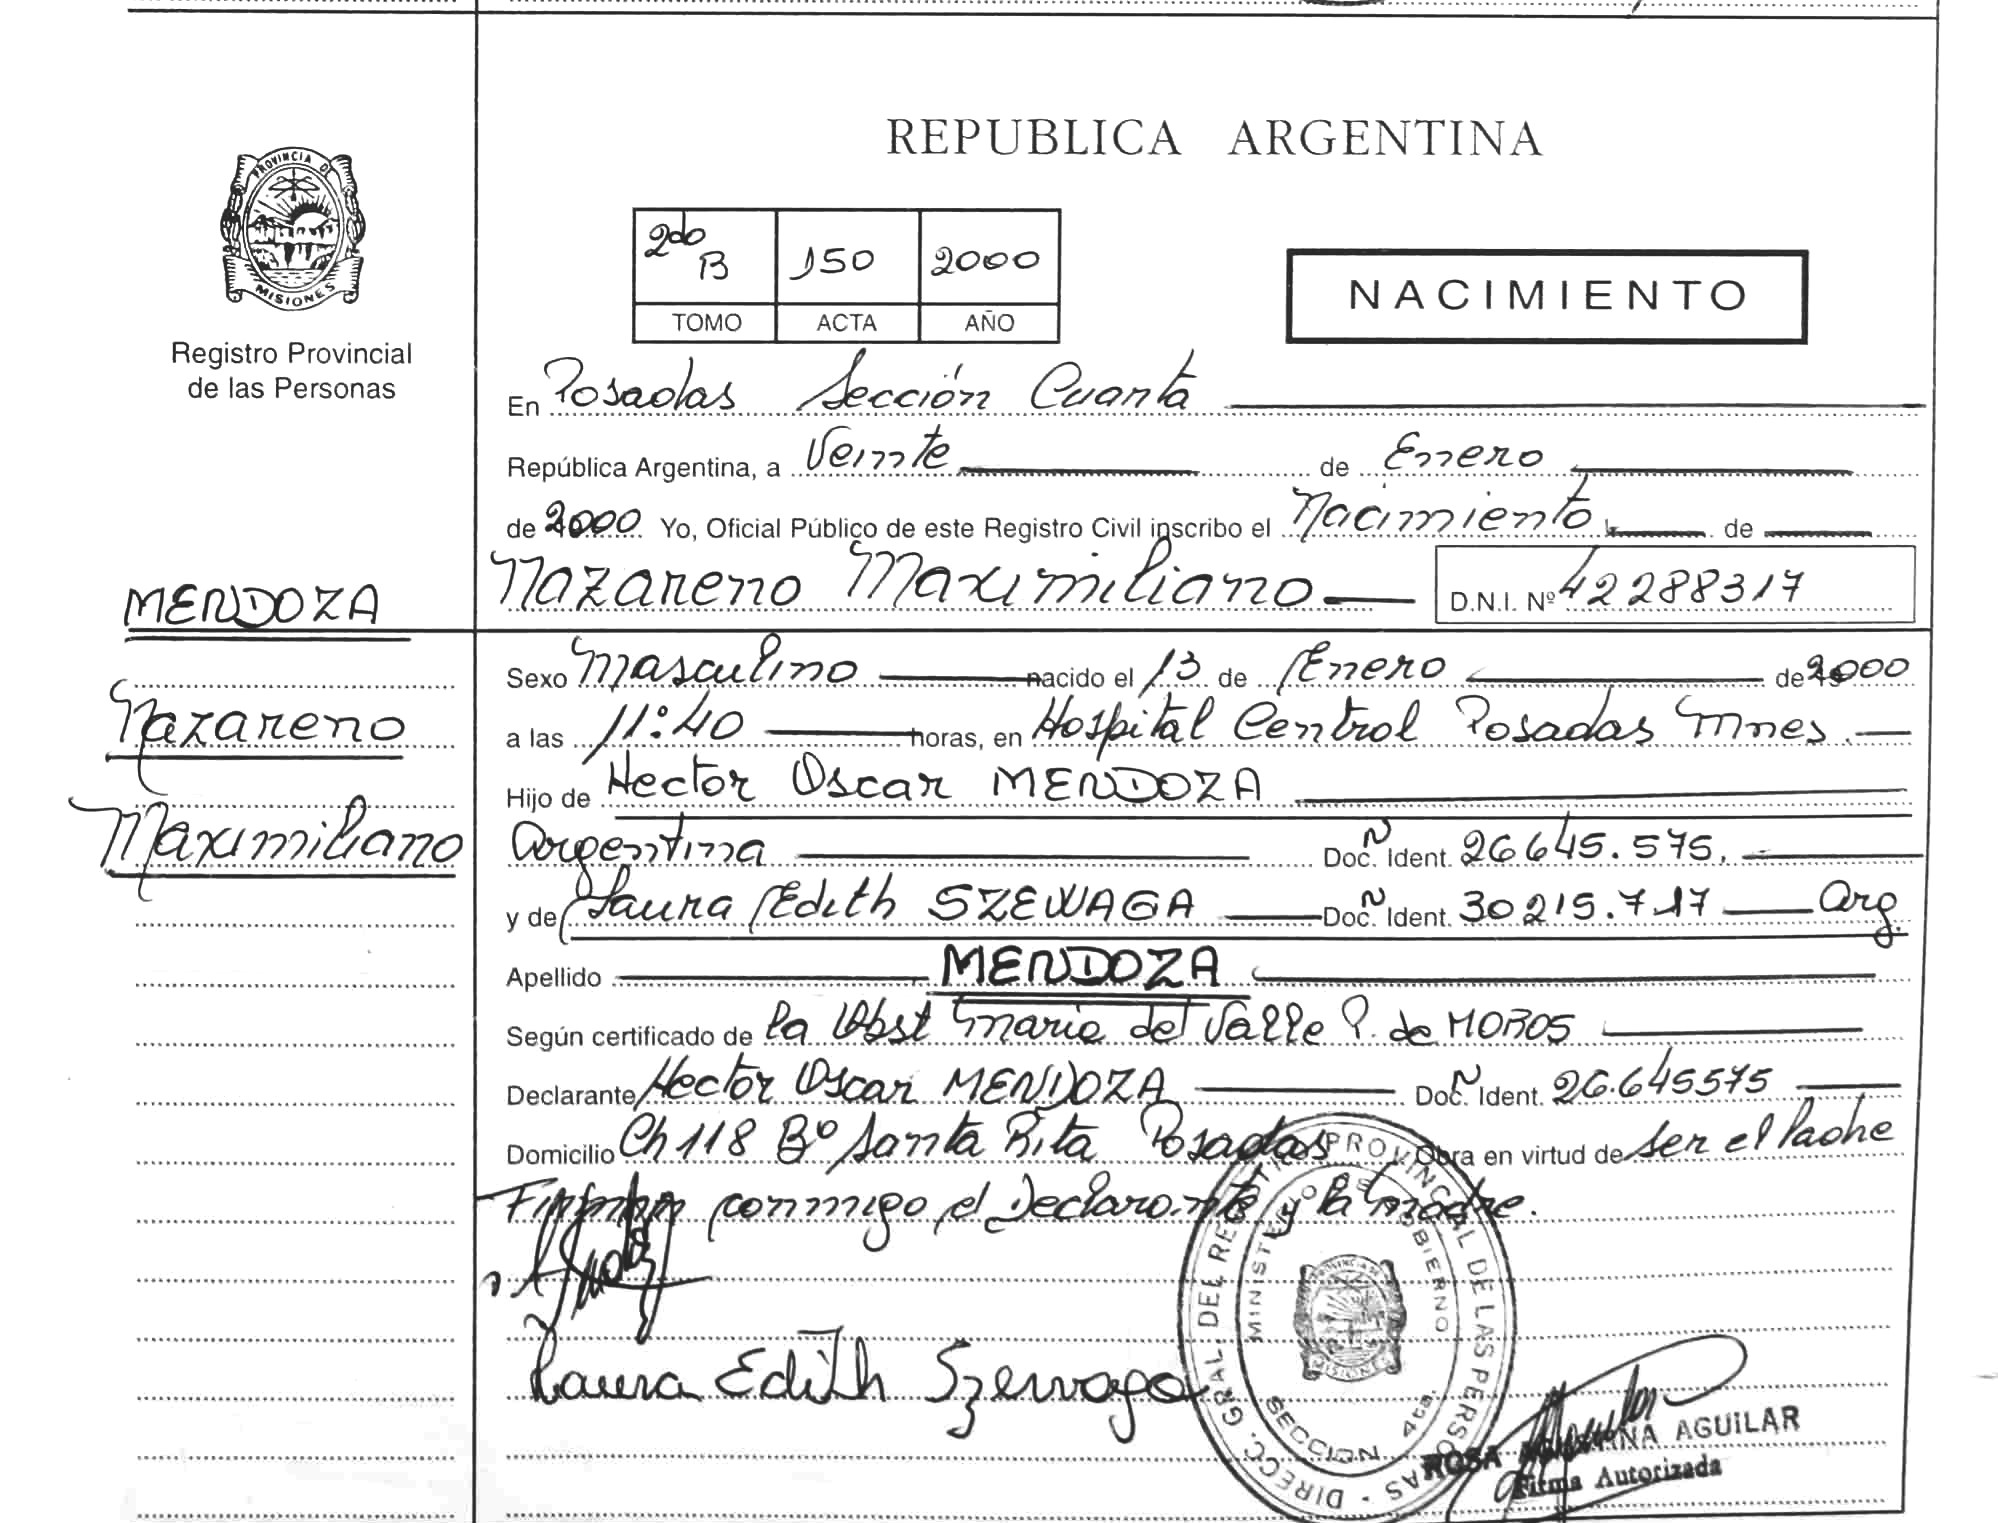 PROVINCIA DE
MISIONES
Registro Provincial
de las Personas
MENDOZA
Nazareno
Maximiliano
REPUBLICA ARGENTINA
2do B 150 2000
TOMO ACTA AÑO
NACIMIENTO
En Posadas Sección Cuarta
República Argentina, a Veinte de Enero
de 2000 Yo, Oficial Público de este Registro Civil inscribo el Nacimiento de
Nazareno Maximiliano D.N.I. Nº 42288317
Sexo Masculino nacido el 13 de Enero de 2000
a las 11:40 horas, en Hospital Central Posadas Mnes.
Hijo de Hector Oscar MENDOZA
Argentina Doc. Ident. 26645.575.
y de Laura Edith SZEWAGA Doc. Ident. 30215.717 Arg.
Apellido MENDOZA
Según certificado de la Obst Maria del Valle P. de MOROS
Declarante Hector Oscar MENDOZA Doc. Ident. 26.645575
Domicilio Ch 118 Bº Santa Rita Posadas Obra en virtud de ser el Padre
Firman conmigo el Declarante y la madre.
Laura Edith Szewaga
DIRECC. GRAL. DEL REGISTRO PROVINCIAL DE LAS PERSONAS
MINISTERIO DE GOBIERNO
SECCION 4ta.
PROVINCIA DE
MISIONES
ROSA AGUILAR
Firma Autorizada